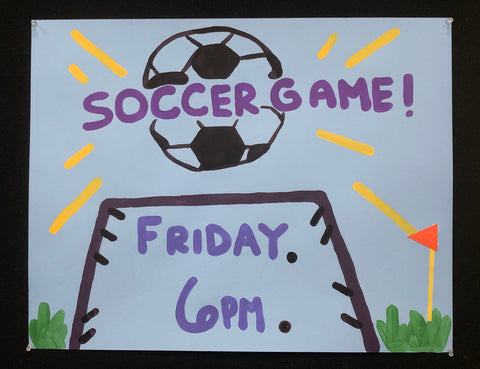 SOCCER GAME!
FRIDAY
6PM